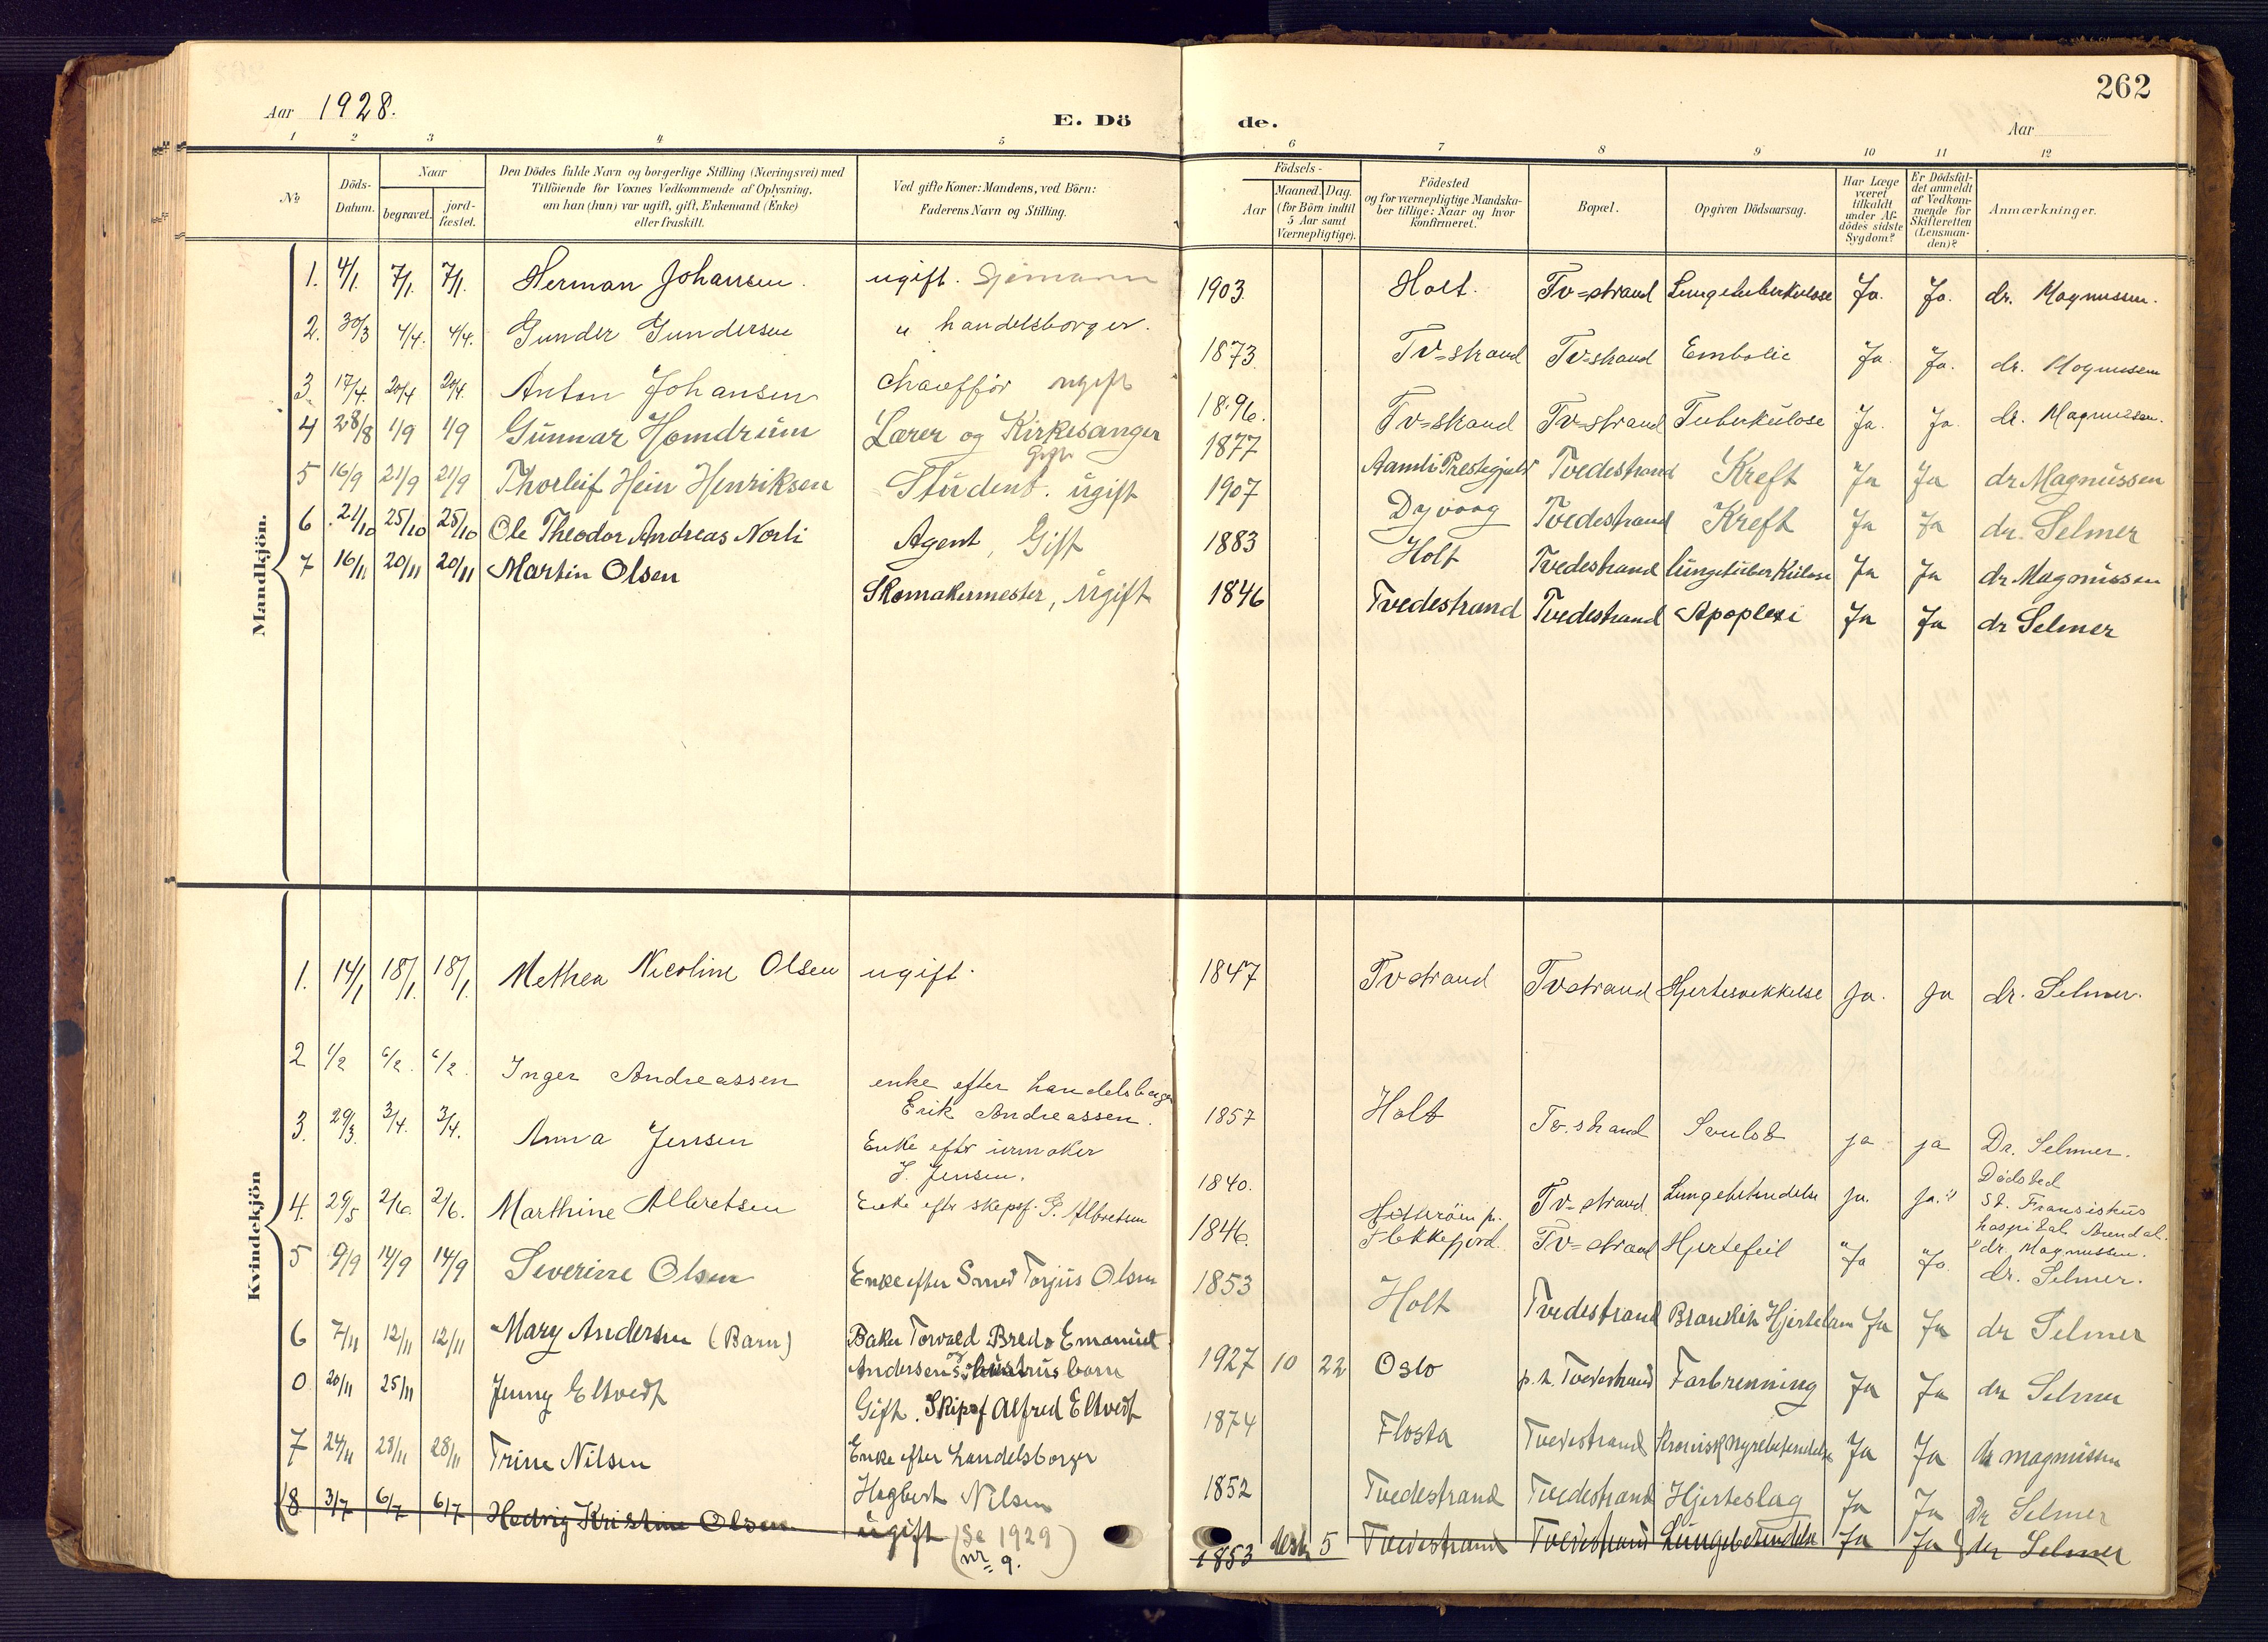 262
Aar 1928.
E. Dö
de.
Aar
1 2 3 4 5 6 7 8 9 10 11 12
No
Döds-Datum.
Naar
begravet.
jord-fæstet.
Den Dödes fulde Navn og borgerlige Stilling (Næringsvei) med
Tilföiende for Voxnes Vedkommende af Oplysning,
om han (hun) var ugift, gift, Enkemand (Enke)
eller fraskilt.
Ved gifte Koner: Mandens, ved Börn:
Faderens Navn og Stilling.
Födsels-
Aar
Maaned. Dag.
(for Börn indtil
5 Aar samt
Værnepligtige).
Födested
og for værnepligtige Mandska-
ber tillige: Naar og hvor
konfirmeret.
Bopæl.
Opgiven Dödsaarsag.
Har Læge
været
tilkaldt
under Af-
dödes sidste
Sygdom?
Er Dödsfal-
det anmeldt
af Vedkom-
mende for
Skifteretten
(Lensman-
den)?
Anmærkninger.
Mandkjön.
1. 4/1. 7/1. 7/1. Herman Johansen. ugift. Sjømann 1903. Holt. Tv=strand Lungetuberkulose Ja. Ja. dr. Magnussen.
2. 30/3 4/4. 4/4. Gunder Gundersen " handelsborger. 1873. Tv=strand Tv=strand Embolie Ja. Ja. dr. Magnussen
3. 17/4. 20/4 20/4. Anton Johansen chaufför ugift 1896. Tv=strand Tv=strand Tuberkulose Ja. Ja. dr. Magnussen.
4 28/8 1/9 1/9 Gunnar Homdrum Lærer og Kirkesanger Gift 1877 Aamli Prestegjeld Tvedestrand Kreft Ja Ja dr Magnussen
5 16/9 21/9 21/9 Thorleif Hein Henriksen Student. ugift 1907 Dyvaag Tvedestrand Kreft Ja Ja dr. Selmer
6 21/10 25/10 25/10 Ole Theodor Andreas Norli Agent, Gift 1883 Holt Tvedestrand lungetuberkulose Ja Ja dr Magnussen
7 16/11 20/11 20/11 Martin Olsen Skomakermester, ugift 1846 Tvedestrand Tvedestrand Apoplexi Ja Ja dr Selmer
Kvindekjön
1. 14/1 18/1. 18/1. Methea Nicoline Olsen ugift. 1847 Tvstrand Tvstrand Hjertesvekkelse Ja. Ja dr. Selmer.
2 1/2 6/2. 6/2. Inger Andreassen enke efter handelsborger
Erik Andreassen. 1857 Holt Tv.strand Svulst ja ja Dr. Selmer.
3. 29/3. 3/4. 3/4. Anna Jensen Enke efter urmaker
J. Jensen. 1840. Tv=strand Lungebetendelse ja. ja. Dödsted
St. Fransiskus
hospital Arendal.
dr. Magnussen.
4. 29/5 2/6. 2/6. Marthine Albretsen Enke eftr skipsf. Albretsen 1846. Flekkefjord. Tv=strand Hjertefeil Ja Ja. dr. Selmer.
5 9/9 14/9 14/9 Severine Olsen Enke efter Smed Torjus Olsen 1853 Holt Tvedestrand Ja Ja dr Selmer
6 7/11 12/11 12/11 Mary Andersen (Barn) Baker Torvald Bredo Emanuel
Andersen og hustrus barn 1927 10 22 Oslo p.t. Tvedestrand Forbrenning Ja Ja dr Selmer
0 20/11 25/11 Jenny Eltvedt Gift. Skipsf Alfred Eltvedt 1874 Flosta Tvedestrand Kronisk Nyrebetendelse Ja Ja dr Magnussen
7 24/11 28/11 28/11 Trine Nilsen Enke efter handelsborger
Hagbert Nilsen 1852 Tvedestrand Tvedestrand Hjerteslag Ja Ja Dr Selmer
(8 3/7 6/7 6/7 Hedvig Kristine Olsen ugift (Se 1929
nr 9.) 1853 desbr 5 Tvedestrand Tvedestrand Lungebetendelse Ja Ja) dr Selmer